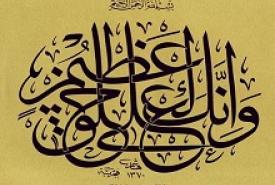 بسم الله الرحمن الرحيم
وانك لعلى خلق عظيم
١٣٧٠